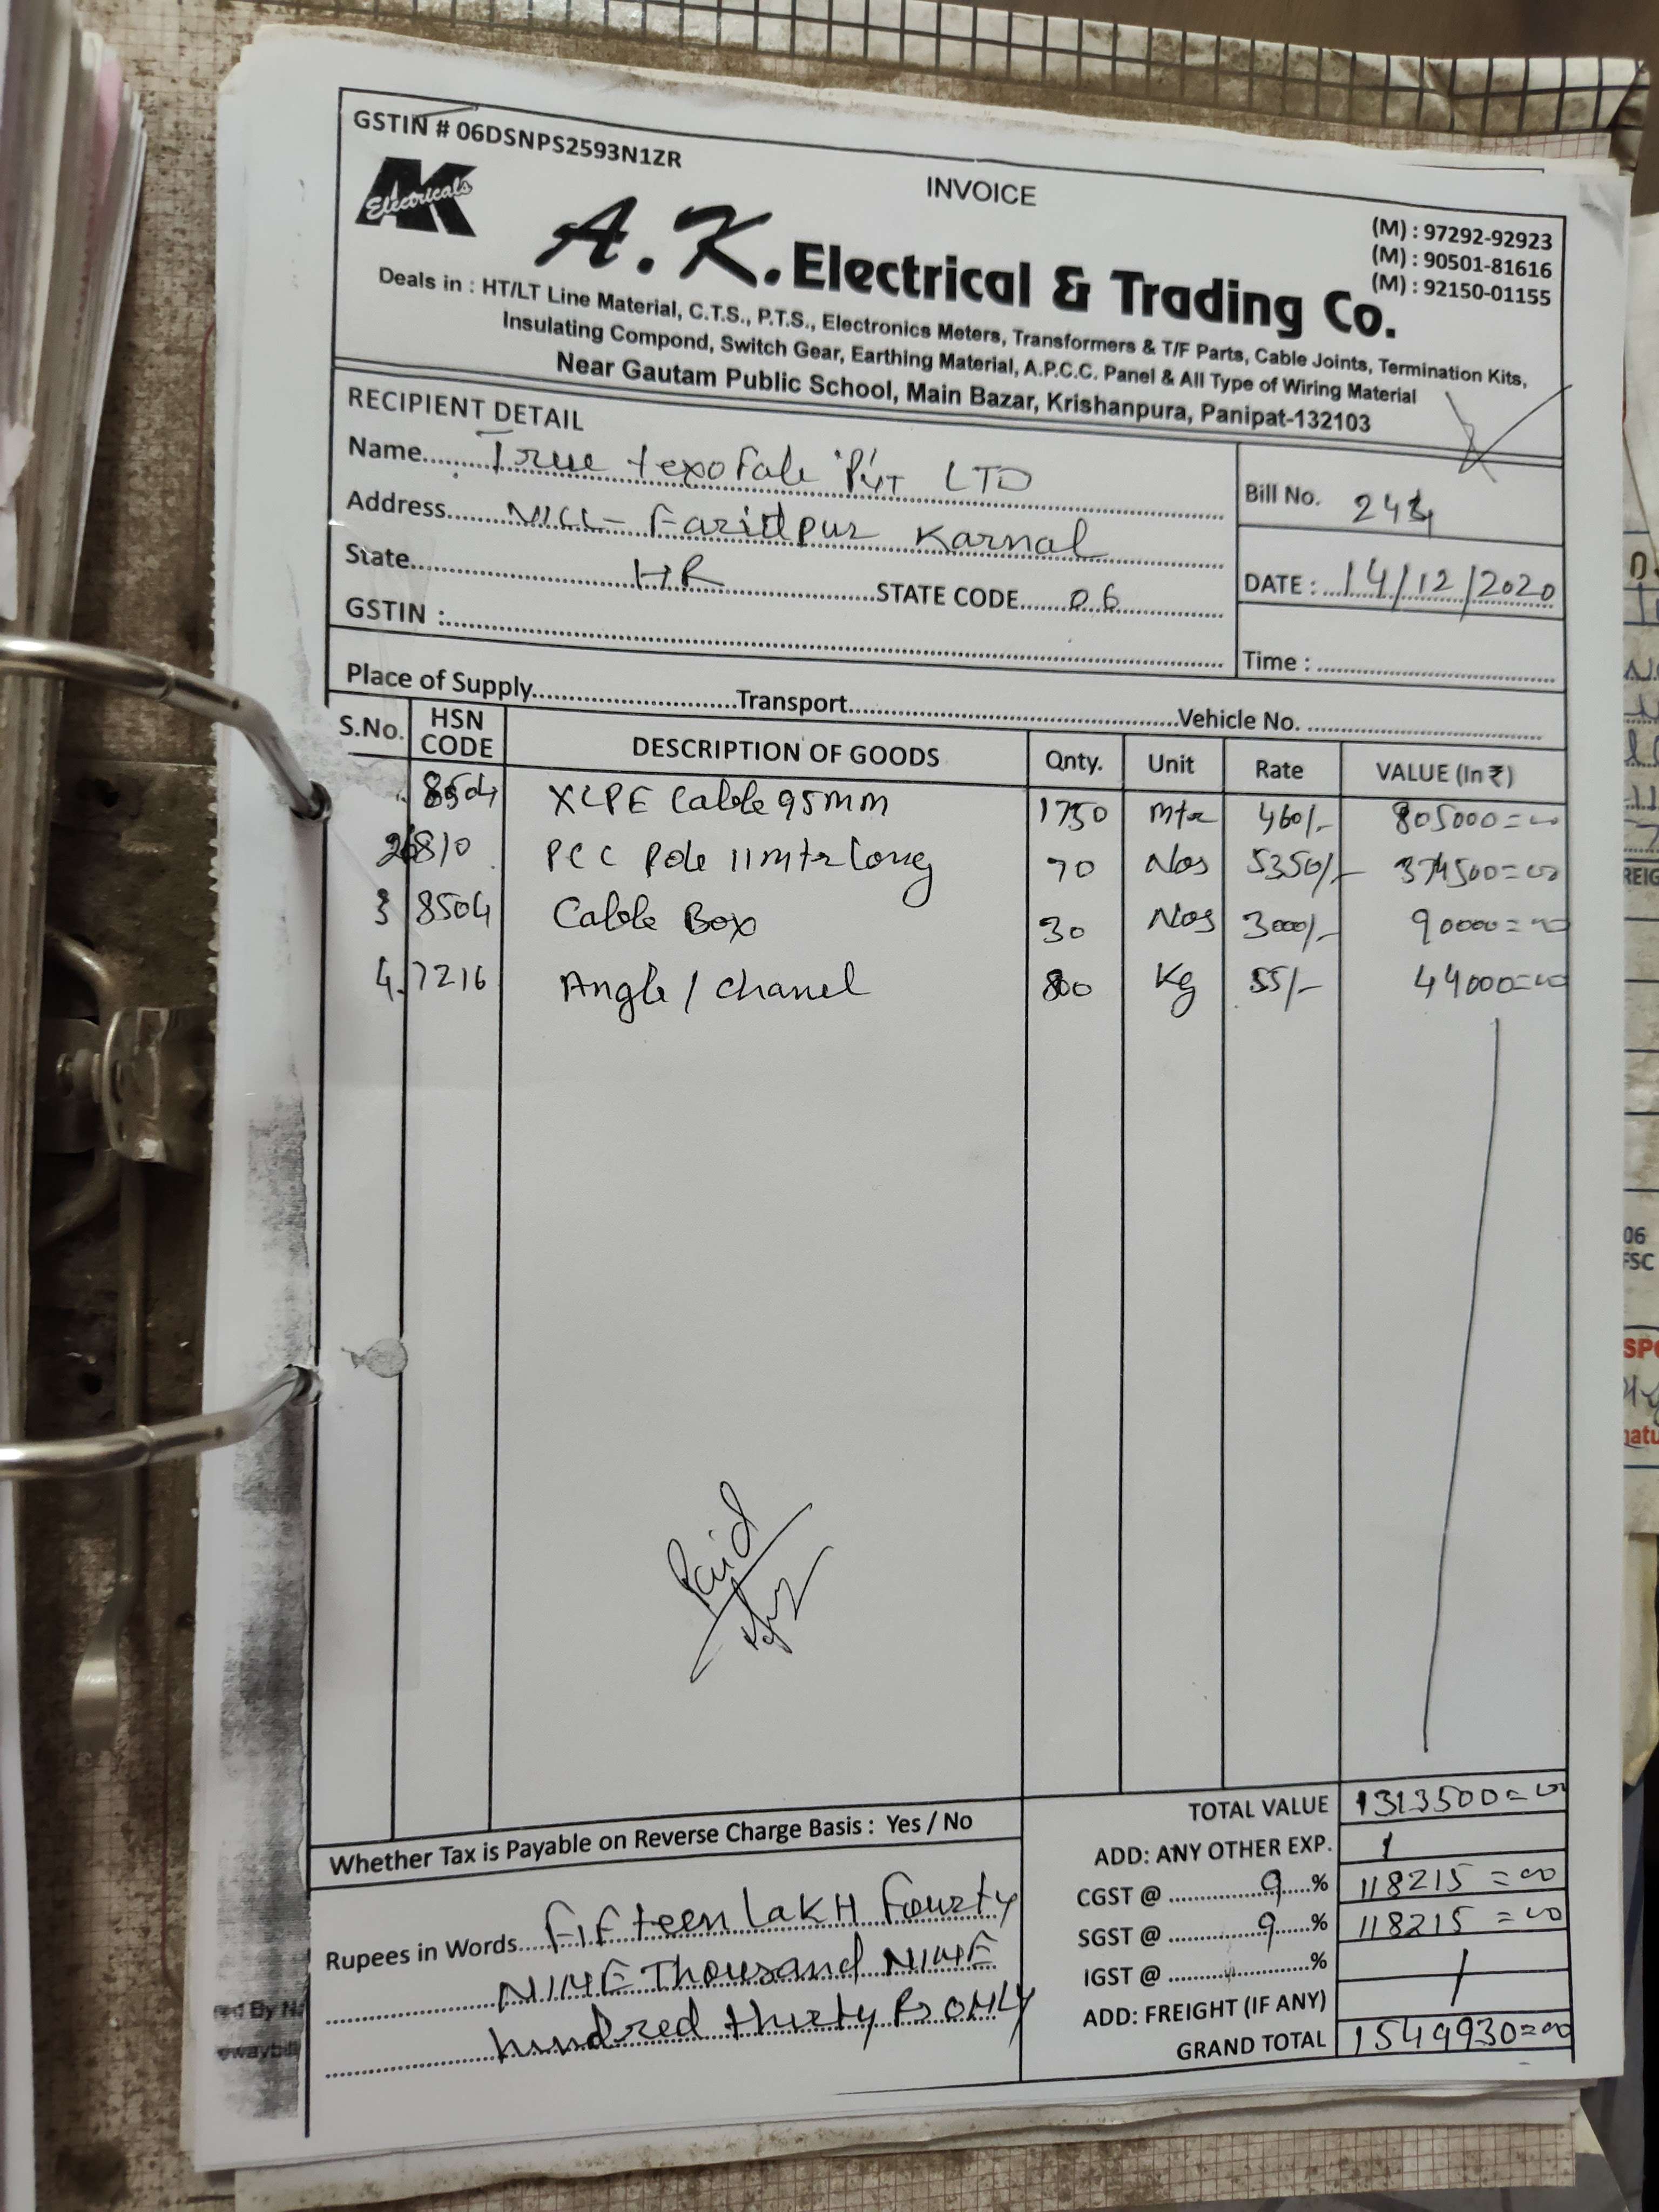 GSTIN # 06DSNPS2593N1ZR
INVOICE
AK Electricals
(M) : 97292-92923
(M) : 90501-81616
(M) : 92150-01155
A.K. Electrical & Trading Co.
Deals in : HT/LT Line Material, C.T.S., P.T.S., Electronics Meters, Transformers & T/F Parts, Cable Joints, Termination Kits,
Insulating Compond, Switch Gear, Earthing Material, A.P.C.C. Panel & All Type of Wiring Material
Near Gautam Public School, Main Bazar, Krishanpura, Panipat-132103
RECIPIENT DETAIL
Name True texofab Pvt LTD
Address Faridpur Karnal
State HR STATE CODE 06
GSTIN :
Bill No.
DATE : 14/12/2020
Time :
Place of Supply Transport Vehicle No.
S.No. HSN CODE DESCRIPTION OF GOODS Qnty. Unit Rate VALUE (In ₹)
8504 XLPE Cable 95mm 1750 Mtr 460/- 805000=00
2 6810 PCC Pole 11mtr long 70 Nos 5350/- 374500=00
3 8504 Cable Box 30 Nos 3000/- 90000=00
4. 7216 Angle / chanel 800 Kg 55/- 44000=00
Paid
TOTAL VALUE 1313500=00
Whether Tax is Payable on Reverse Charge Basis : Yes / No
ADD: ANY OTHER EXP.
CGST @ 9 % 118215=00
SGST @ 9 % 118215=00
IGST @ %
ADD: FREIGHT (IF ANY)
GRAND TOTAL 1549930=00
Rupees in Words Fifteen LAKH Fourty
NINE Thousand NINE
hundred thirty Rs ONLY